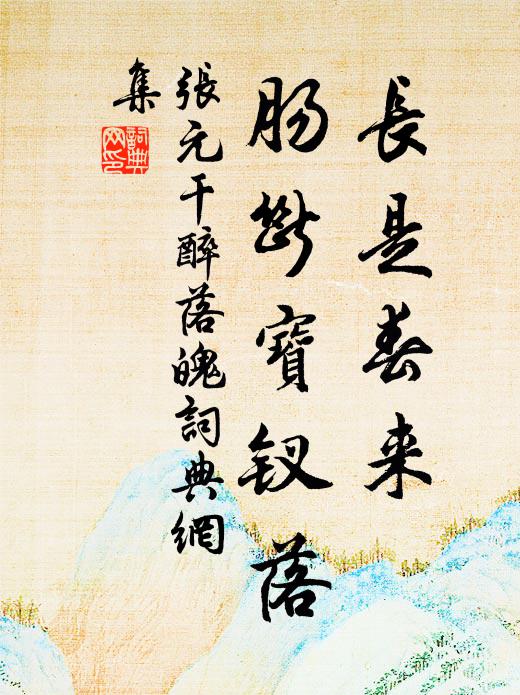 長是春来
肠斷寶钗落
張元干醉落魄詞典網
集
詞典網印